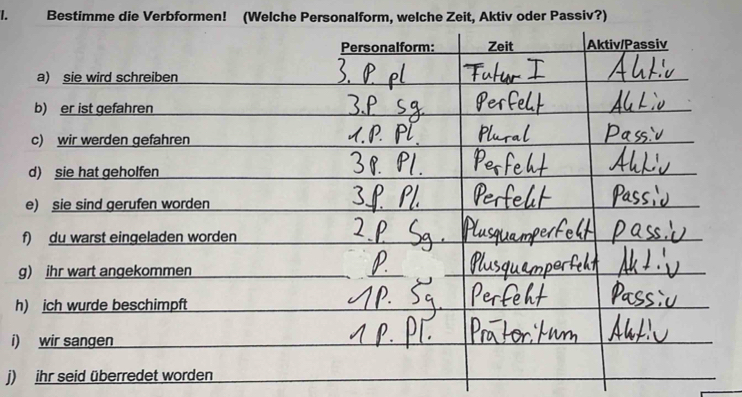 1. Bestimme die Verbformen! (Welche Personalform, welche Zeit, Aktiv oder Passiv?)
Personalform: Zeit Aktiv/Passiv
a) sie wird schreiben 3. P. pl Futur I Aktiv
b) er ist gefahren 3.P sg. Perfekt Aktiv
c) wir werden gefahren 1. P. Pl. Plural Passiv
d) sie hat geholfen 3 P. Pl. Perfekt Aktiv
e) sie sind gerufen worden 3.P. Pl. Perfekt Passiv
f) du warst eingeladen worden 2.P. Sg. Plusquamperfekt passiv
g) ihr wart angekommen P. Plusquamperfekt Aktiv
h) ich wurde beschimpft 1P. Sg. Perfekt Passiv
i) wir sangen 1 P. Pl. Präteritum Aktiv
j) ihr seid überredet worden